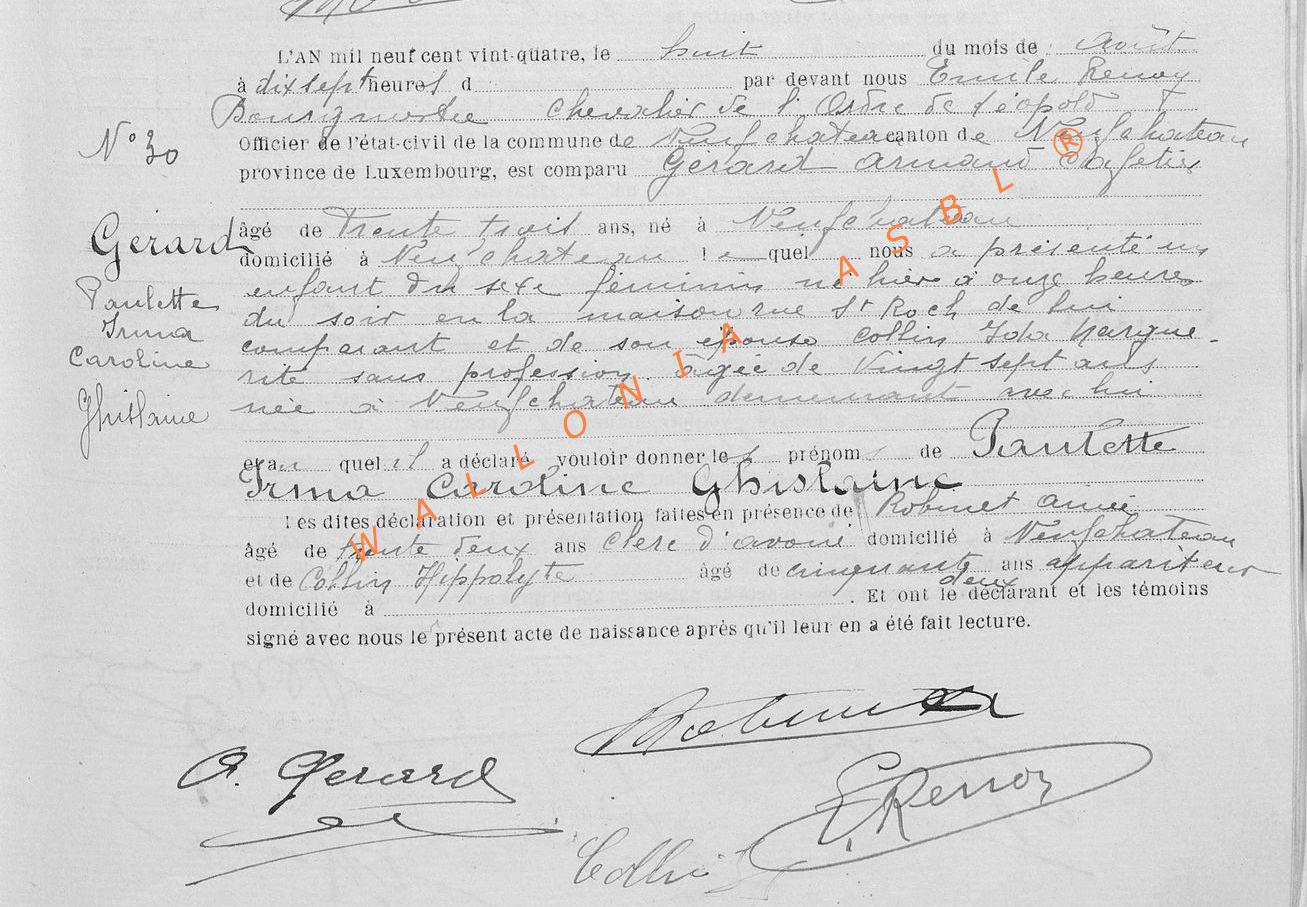 L'AN mil neuf cent vint-quatre, le huit du mois de Août
à dix sept heures d par devant nous Emile
Bourgmestre Chevalier de l'Ordre de Léopold
Officier de l'état-civil de la commune de Neufchateau canton de Neufchateau
province de Luxembourg, est comparu Gerard Armand Cafetier
N° 30
âgé de Trente trois ans, né à Neufchateau
Gerard
domicilié à Neufchateau lequel nous a présenté un
Paulette
enfant du sexe féminin né hier à onze heures
Irma
du soir en la maison rue St Roch de lui
Caroline
comparant et de son épouse Collin Ida Margue-
rite sans profession âgée de Vingt sept ans
Ghislaine
née à Neufchateau demeurant avec lui
et au quel il a déclaré vouloir donner les prénoms de Paulette
Irma Caroline Ghislaine
Les dites déclaration et présentation faites en présence de Robinet Aimé
âgé de trente deux ans clerc d'avoué domicilié à Neufchateau
et de Collin Hippolyte âgé de cinquante deux ans appariteur
domicilié à . Et ont le déclarant et les témoins
signé avec nous le présent acte de naissance après qu'il leur en a été fait lecture.
Robinet
A. Gerard
Collin
WALLONIA ASBL ®